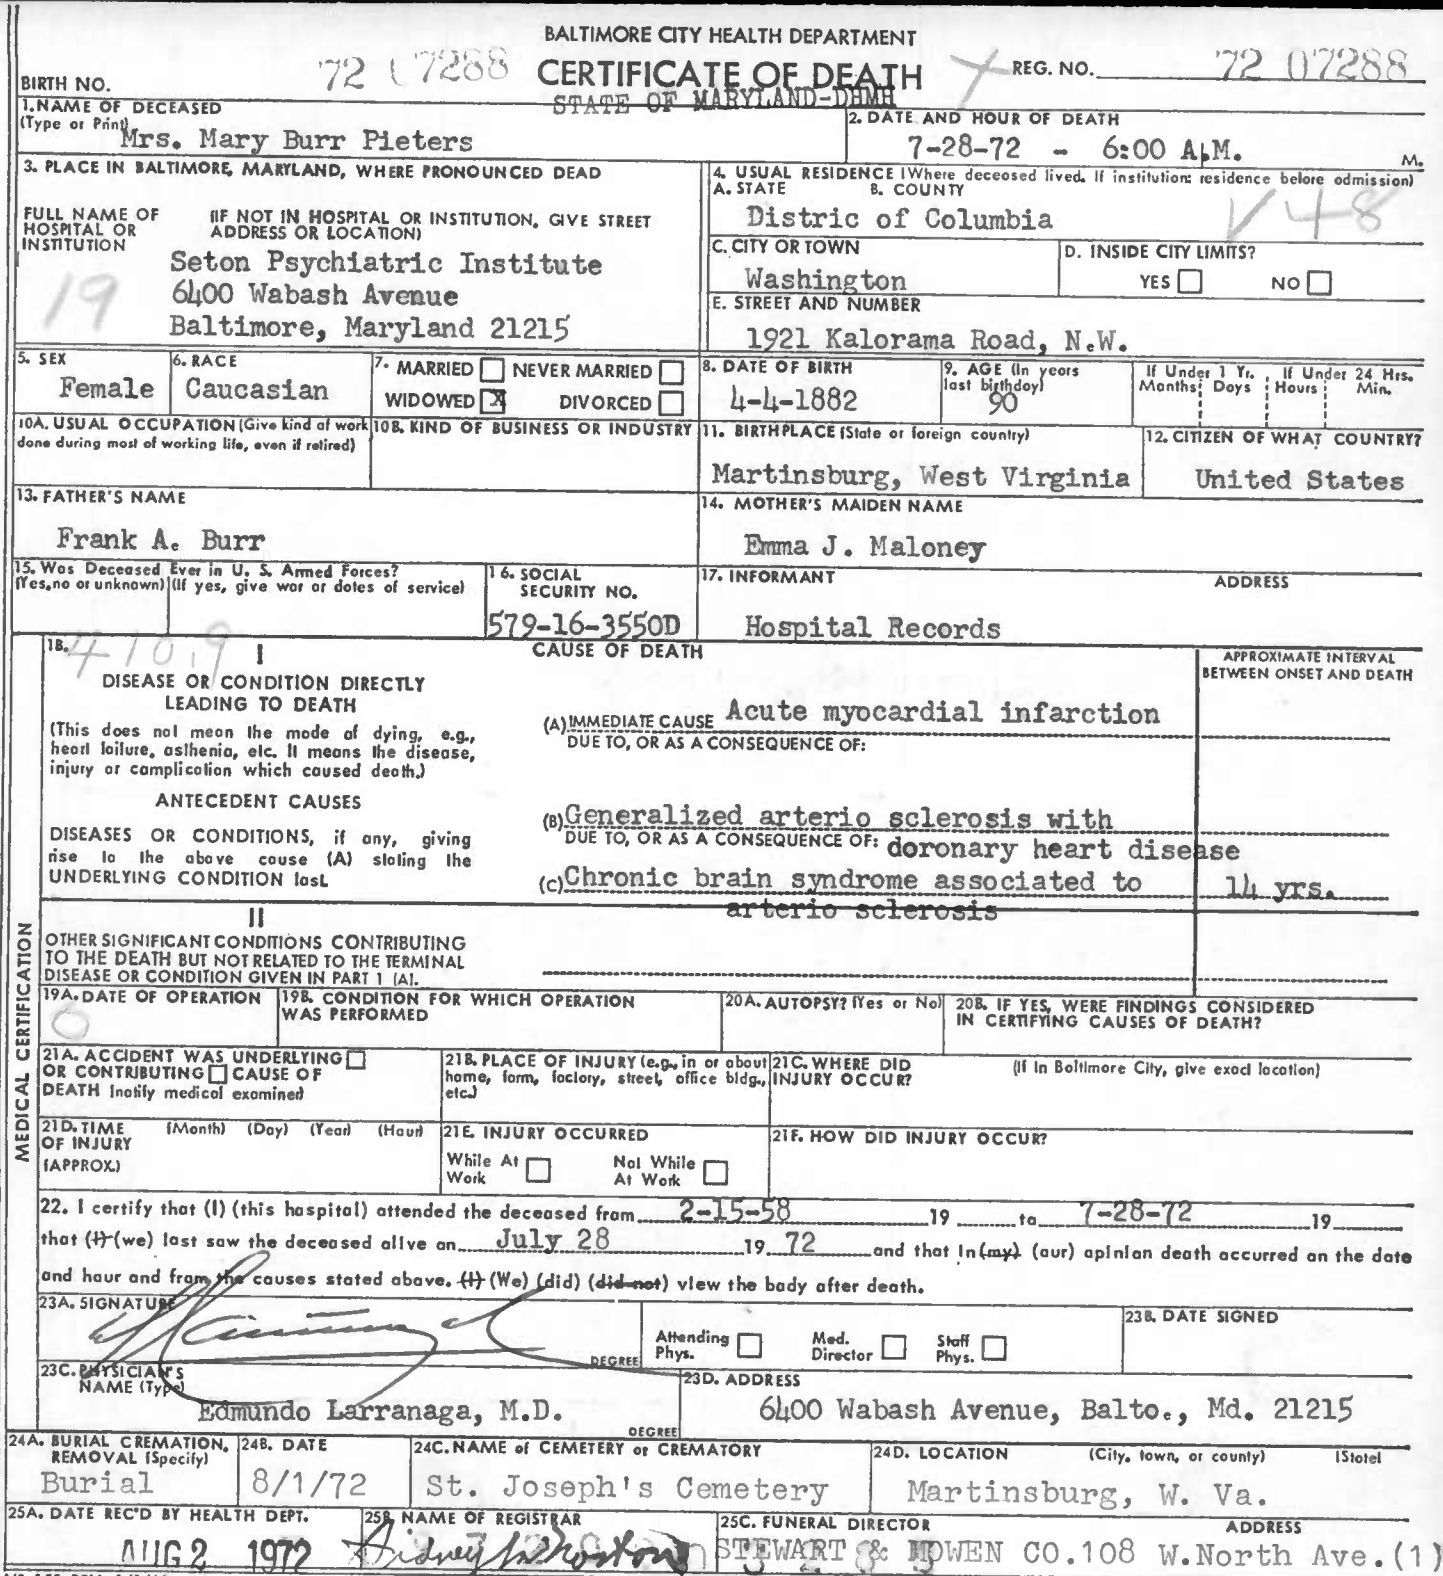 BALTIMORE CITY HEALTH DEPARTMENT
72 07288 CERTIFICATE OF DEATH REG. NO. 72 07288
BIRTH NO.
STATE OF MARYLAND-DHMH
1. NAME OF DECEASED
(Type or Print) Mrs. Mary Burr Pieters
2. DATE AND HOUR OF DEATH
7-28-72 - 6:00 A.M. M.
3. PLACE IN BALTIMORE, MARYLAND, WHERE PRONOUNCED DEAD
FULL NAME OF HOSPITAL OR INSTITUTION
(IF NOT IN HOSPITAL OR INSTITUTION, GIVE STREET
ADDRESS OR LOCATION)
19
Seton Psychiatric Institute
6400 Wabash Avenue
Baltimore, Maryland 21215
4. USUAL RESIDENCE (Where deceased lived. If institution: residence before admission)
A. STATE B. COUNTY
Distric of Columbia V48
C. CITY OR TOWN
Washington
D. INSIDE CITY LIMITS?
YES NO
E. STREET AND NUMBER
1921 Kalorama Road, N.W.
5. SEX
Female
6. RACE
Caucasian
7. MARRIED NEVER MARRIED
WIDOWED X DIVORCED
8. DATE OF BIRTH
4-4-1882
9. AGE (In years
last birthday)
90
If Under 1 Yr. If Under 24 Hrs.
Months Days Hours Min.
10A. USUAL OCCUPATION (Give kind of work
done during most of working life, even if retired)
10B. KIND OF BUSINESS OR INDUSTRY
11. BIRTHPLACE (State or foreign country)
Martinsburg, West Virginia
12. CITIZEN OF WHAT COUNTRY?
United States
13. FATHER'S NAME
Frank A. Burr
14. MOTHER'S MAIDEN NAME
Emma J. Maloney
15. Was Deceased Ever in U. S. Armed Forces?
(Yes, no or unknown) (If yes, give war or dates of service)
16. SOCIAL
SECURITY NO.
579-16-3550D
17. INFORMANT ADDRESS
Hospital Records
MEDICAL CERTIFICATION
18. 410.9 I CAUSE OF DEATH
APPROXIMATE INTERVAL
BETWEEN ONSET AND DEATH
DISEASE OR CONDITION DIRECTLY
LEADING TO DEATH
(This does not mean the mode of dying, e.g.,
heart failure, asthenia, etc. It means the disease,
injury or complication which caused death.)
(A) IMMEDIATE CAUSE Acute myocardial infarction
DUE TO, OR AS A CONSEQUENCE OF:
ANTECEDENT CAUSES
DISEASES OR CONDITIONS, if any, giving
rise to the above cause (A) stating the
UNDERLYING CONDITION last.
(B) Generalized arterio sclerosis with
DUE TO, OR AS A CONSEQUENCE OF: doronary heart disease
(C) Chronic brain syndrome associated to 14 yrs.
arterio sclerosis
II
OTHER SIGNIFICANT CONDITIONS CONTRIBUTING
TO THE DEATH BUT NOT RELATED TO THE TERMINAL
DISEASE OR CONDITION GIVEN IN PART 1 (A).
19A. DATE OF OPERATION
0
19B. CONDITION FOR WHICH OPERATION
WAS PERFORMED
20A. AUTOPSY? (Yes or No)
20B. IF YES, WERE FINDINGS CONSIDERED
IN CERTIFYING CAUSES OF DEATH?
21A. ACCIDENT WAS UNDERLYING
OR CONTRIBUTING CAUSE OF
DEATH (notify medical examiner)
21B. PLACE OF INJURY (e.g., in or about
home, farm, factory, street, office bldg.,
etc.)
21C. WHERE DID (If in Baltimore City, give exact location)
INJURY OCCUR?
21D. TIME (Month) (Day) (Year) (Hour)
OF INJURY
(APPROX.)
21E. INJURY OCCURRED
While At Work Not While At Work
21F. HOW DID INJURY OCCUR?
22. I certify that (I) (this hospital) attended the deceased from 2-15-58 19 to 7-28-72 19
that (I) (we) last saw the deceased alive on July 28 19 72 and that in (my) (our) opinion death occurred on the date
and hour and from the causes stated above. (I) (We) (did) (did not) view the body after death.
23A. SIGNATURE
DEGREE
Attending Phys. Med. Director Staff Phys.
23B. DATE SIGNED
23C. PHYSICIAN'S
NAME (Type)
Edmundo Larranaga, M.D.
DEGREE
23D. ADDRESS
6400 Wabash Avenue, Balto., Md. 21215
24A. BURIAL CREMATION,
REMOVAL (Specify)
Burial
24B. DATE
8/1/72
24C. NAME of CEMETERY or CREMATORY
St. Joseph's Cemetery
24D. LOCATION (City, town, or county) (State)
Martinsburg, W. Va.
25A. DATE REC'D BY HEALTH DEPT.
AUG 2 1972
25B. NAME OF REGISTRAR
25C. FUNERAL DIRECTOR ADDRESS
STEWART & MOWEN CO. 108 W. North Ave. (1)